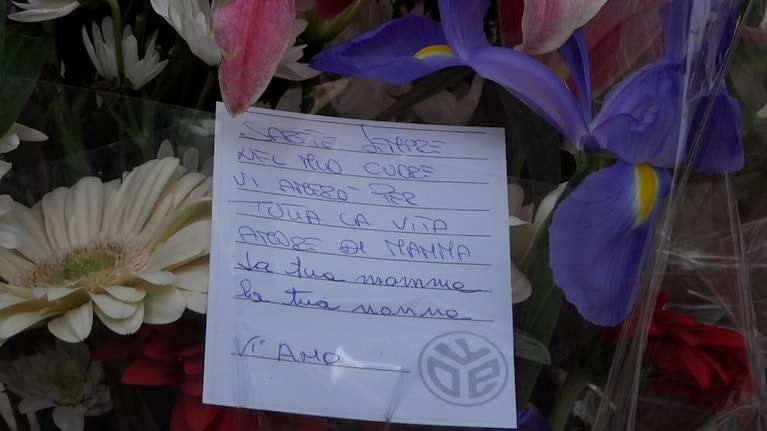 SARETE SEMPRE
NEL MIO CUORE
VI AMERÒ PER
TUTTA LA VITA
AMORE DI MAMMA
La tua mamma
La tua nonna
VI AMO